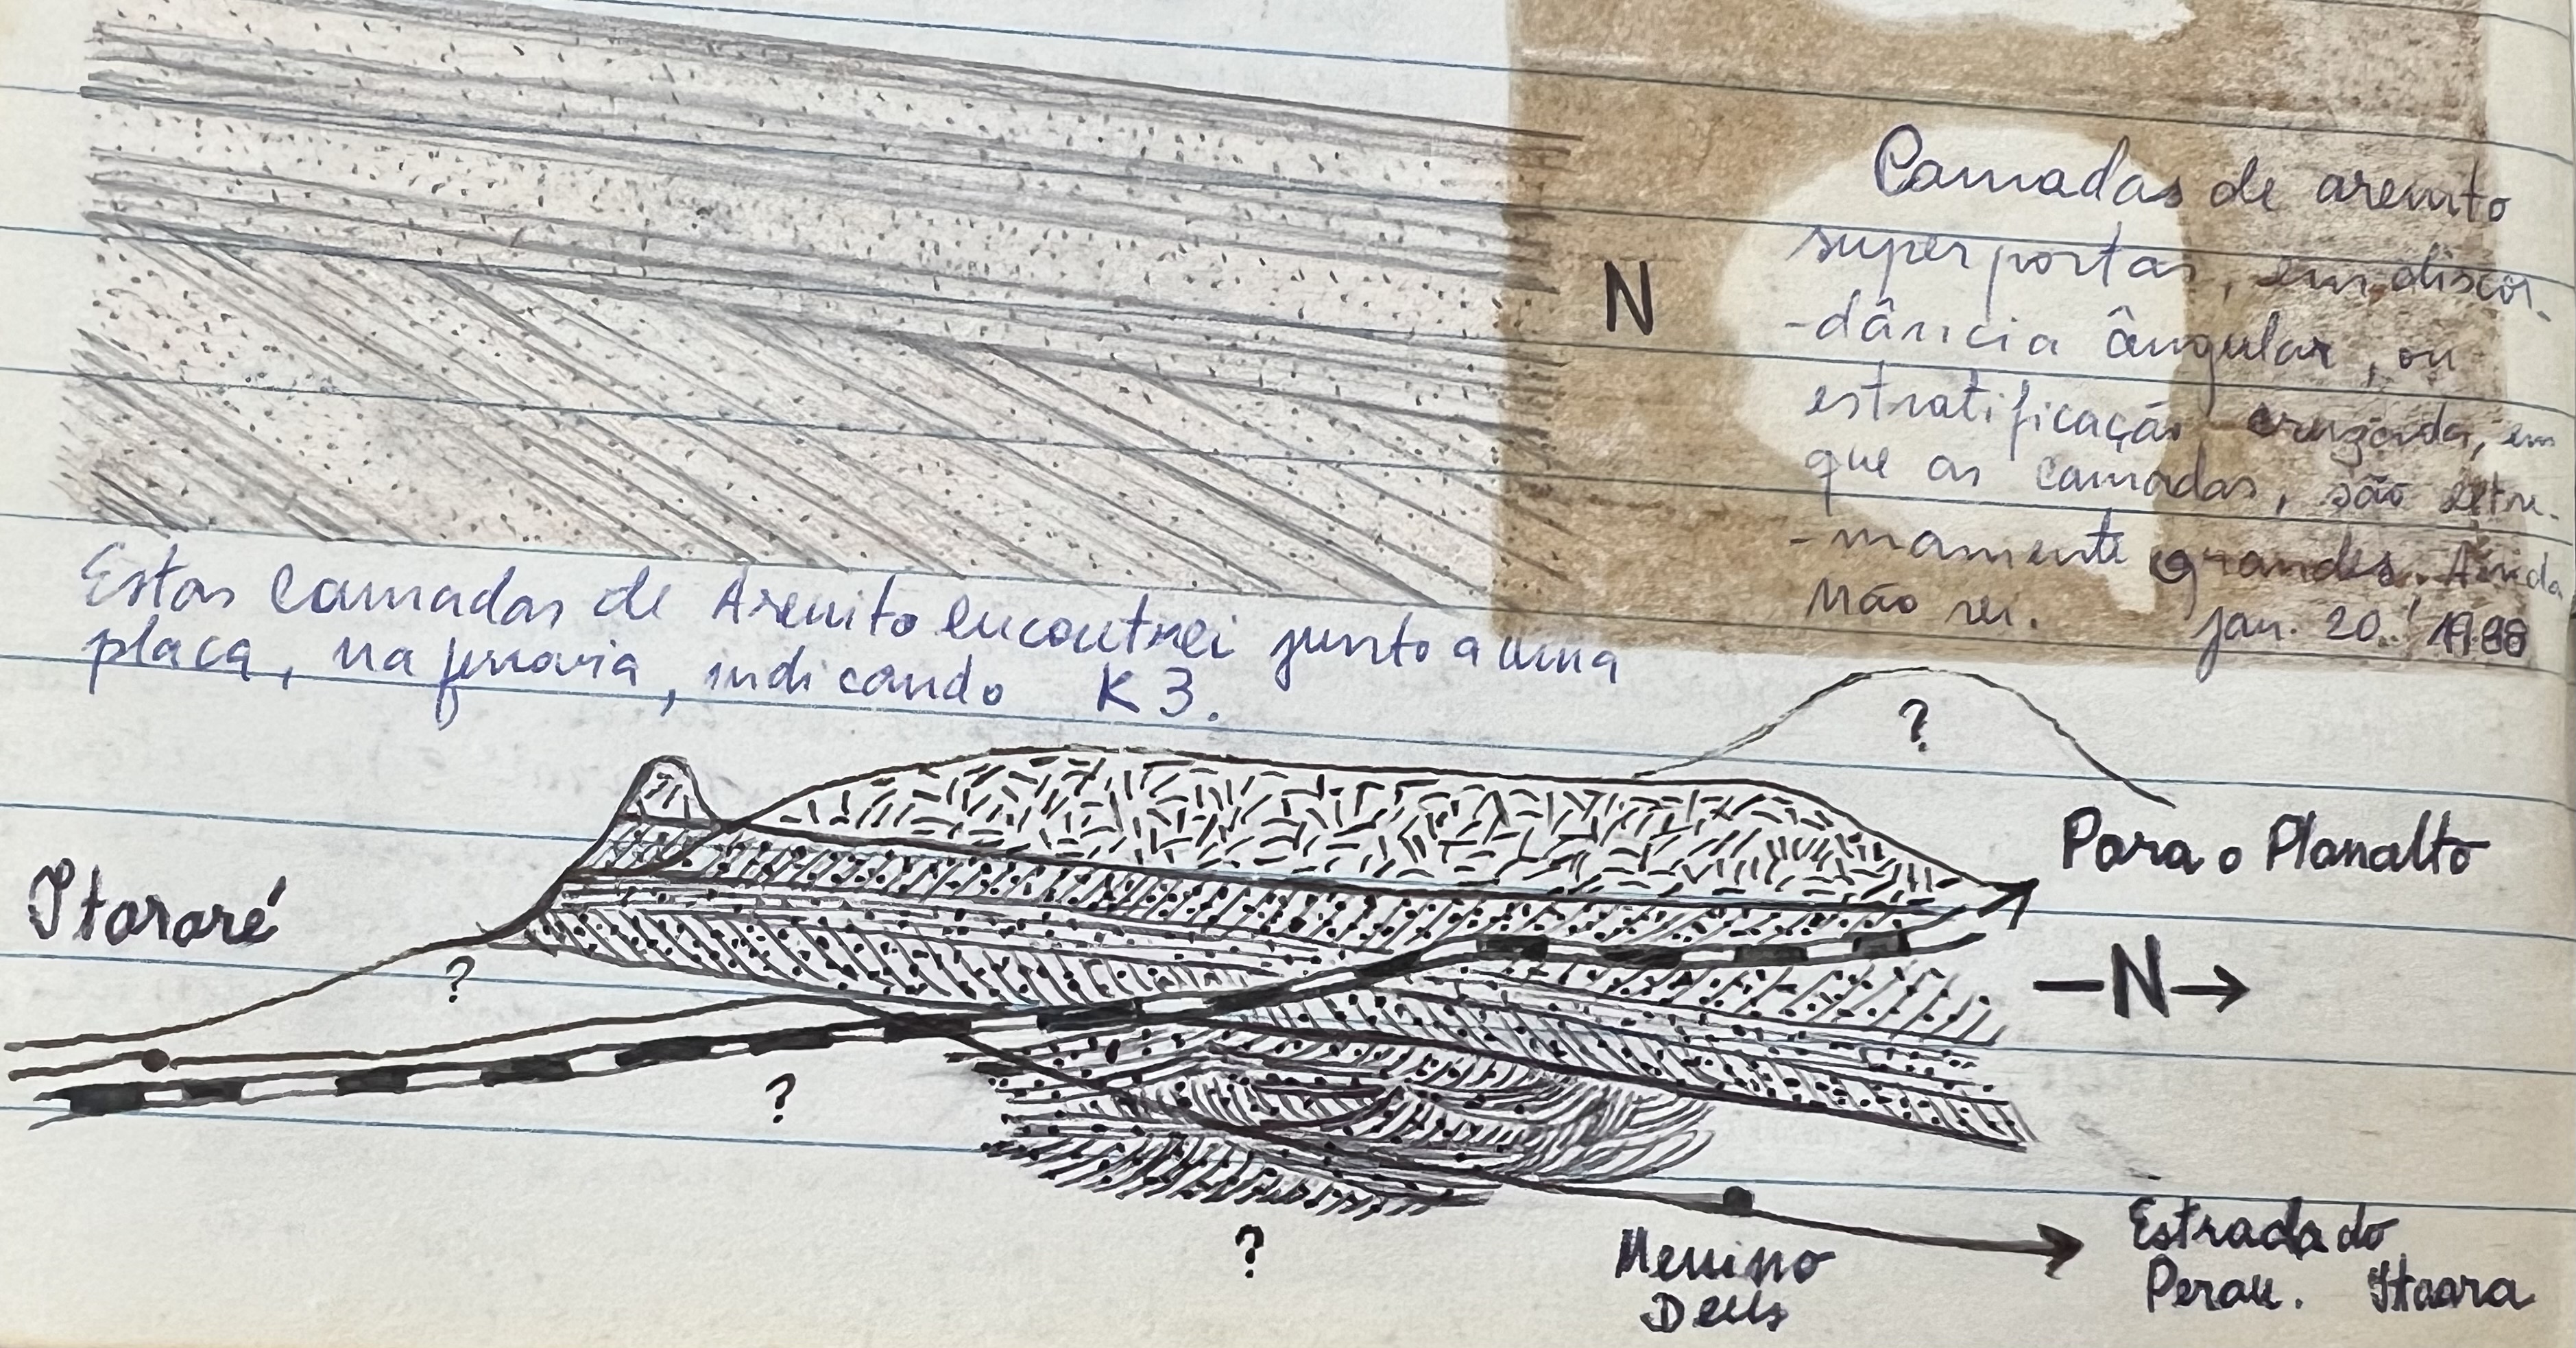 N
Camadas de arenito
superpostas, em discor-
-dância ângular, ou
estratificação cruzada, em
que as camadas, são extre-
-mamente grandes. Ainda
não sei.
jan. 20. 1988
Estas camadas de Arenito encontrei junto a uma
placa, na ferrovia, indicando K 3.
?
Para o Planalto
Itararé
?
N
?
?
Menino
Deus
Estrada do
Perau. Itaara